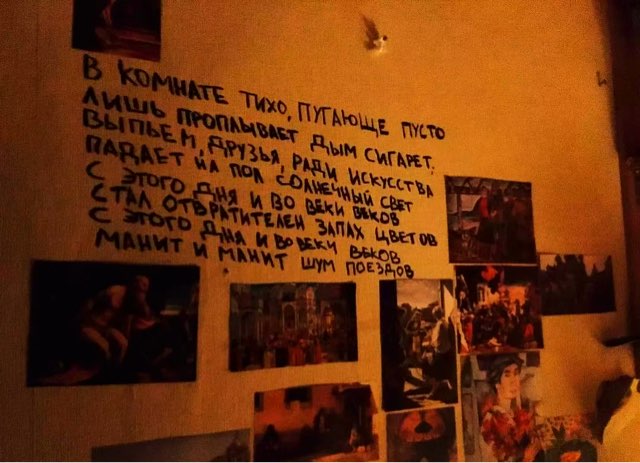 В КОМНАТЕ ТИХО, ПУГАЮЩЕ ПУСТО
ЛИШЬ ПРОПЛЫВАЕТ ДЫМ СИГАРЕТ.
ВЫПЬЕМ, ДРУЗЬЯ, РАДИ ИСКУССТВА
ПАДАЕТ НА ПОЛ СОЛНЕЧНЫЙ СВЕТ
С ЭТОГО ДНЯ И ВО ВЕКИ ВЕКОВ
СТАЛ ОТВРАТИТЕЛЕН ЗАПАХ ЦВЕТОВ
С ЭТОГО ДНЯ И ВО ВЕКИ ВЕКОВ
МАНИТ И МАНИТ ШУМ ПОЕЗДОВ